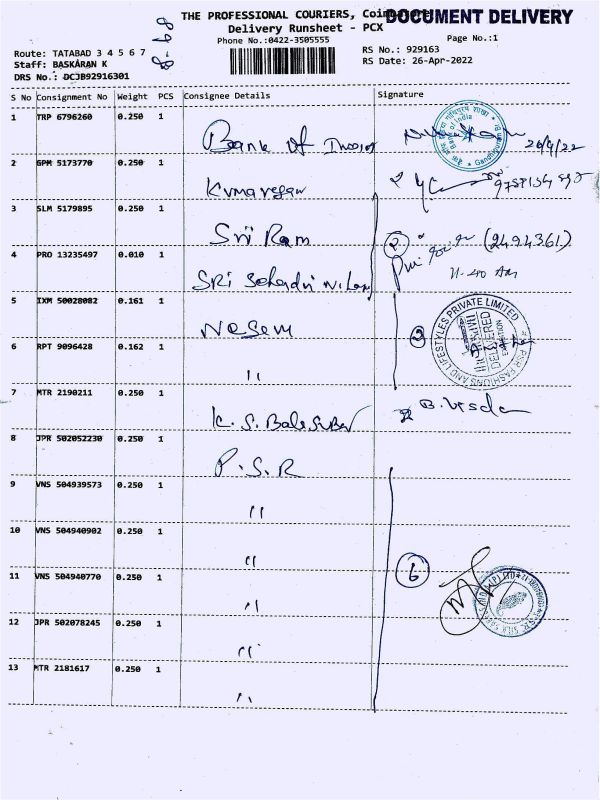 THE PROFESSIONAL COURIERS, Coimbatore
DOCUMENT DELIVERY
Delivery Runsheet - PCX
Phone No.:0422-3505555
Page No.:1
Route: TATABAD 3 4 5 6 7
Staff: BASKARAN K
DRS No.: DCJB92916301
RS No.: 929163
RS Date: 26-Apr-2022
S No Consignment No Weight PCS Consignee Details Signature
1 TRP 6796260 0.250 1 Bank of India 26/4/22
2 GPM 5173770 0.250 1 Kumaresan
3 SLM 5179895 0.250 1 Sri Ram (2494361)
4 PRO 13235497 0.010 1 Sri 11-40 Am
5 IXM 50028082 0.161 1 Naseem
PSR FASHIONS AND LIFESTYLES PRIVATE LIMITED
DELIVERED
6 RPT 9096428 0.162 1 "
7 MTR 2190211 0.250 1 K. S. B.
8 JPR 502052230 0.250 1 P. S. R
9 VNS 504939573 0.250 1 "
10 VNS 504940902 0.250 1 "
6
11 VNS 504940770 0.250 1 "
12 JPR 502078245 0.250 1 "
13 MTR 2181617 0.250 1 "